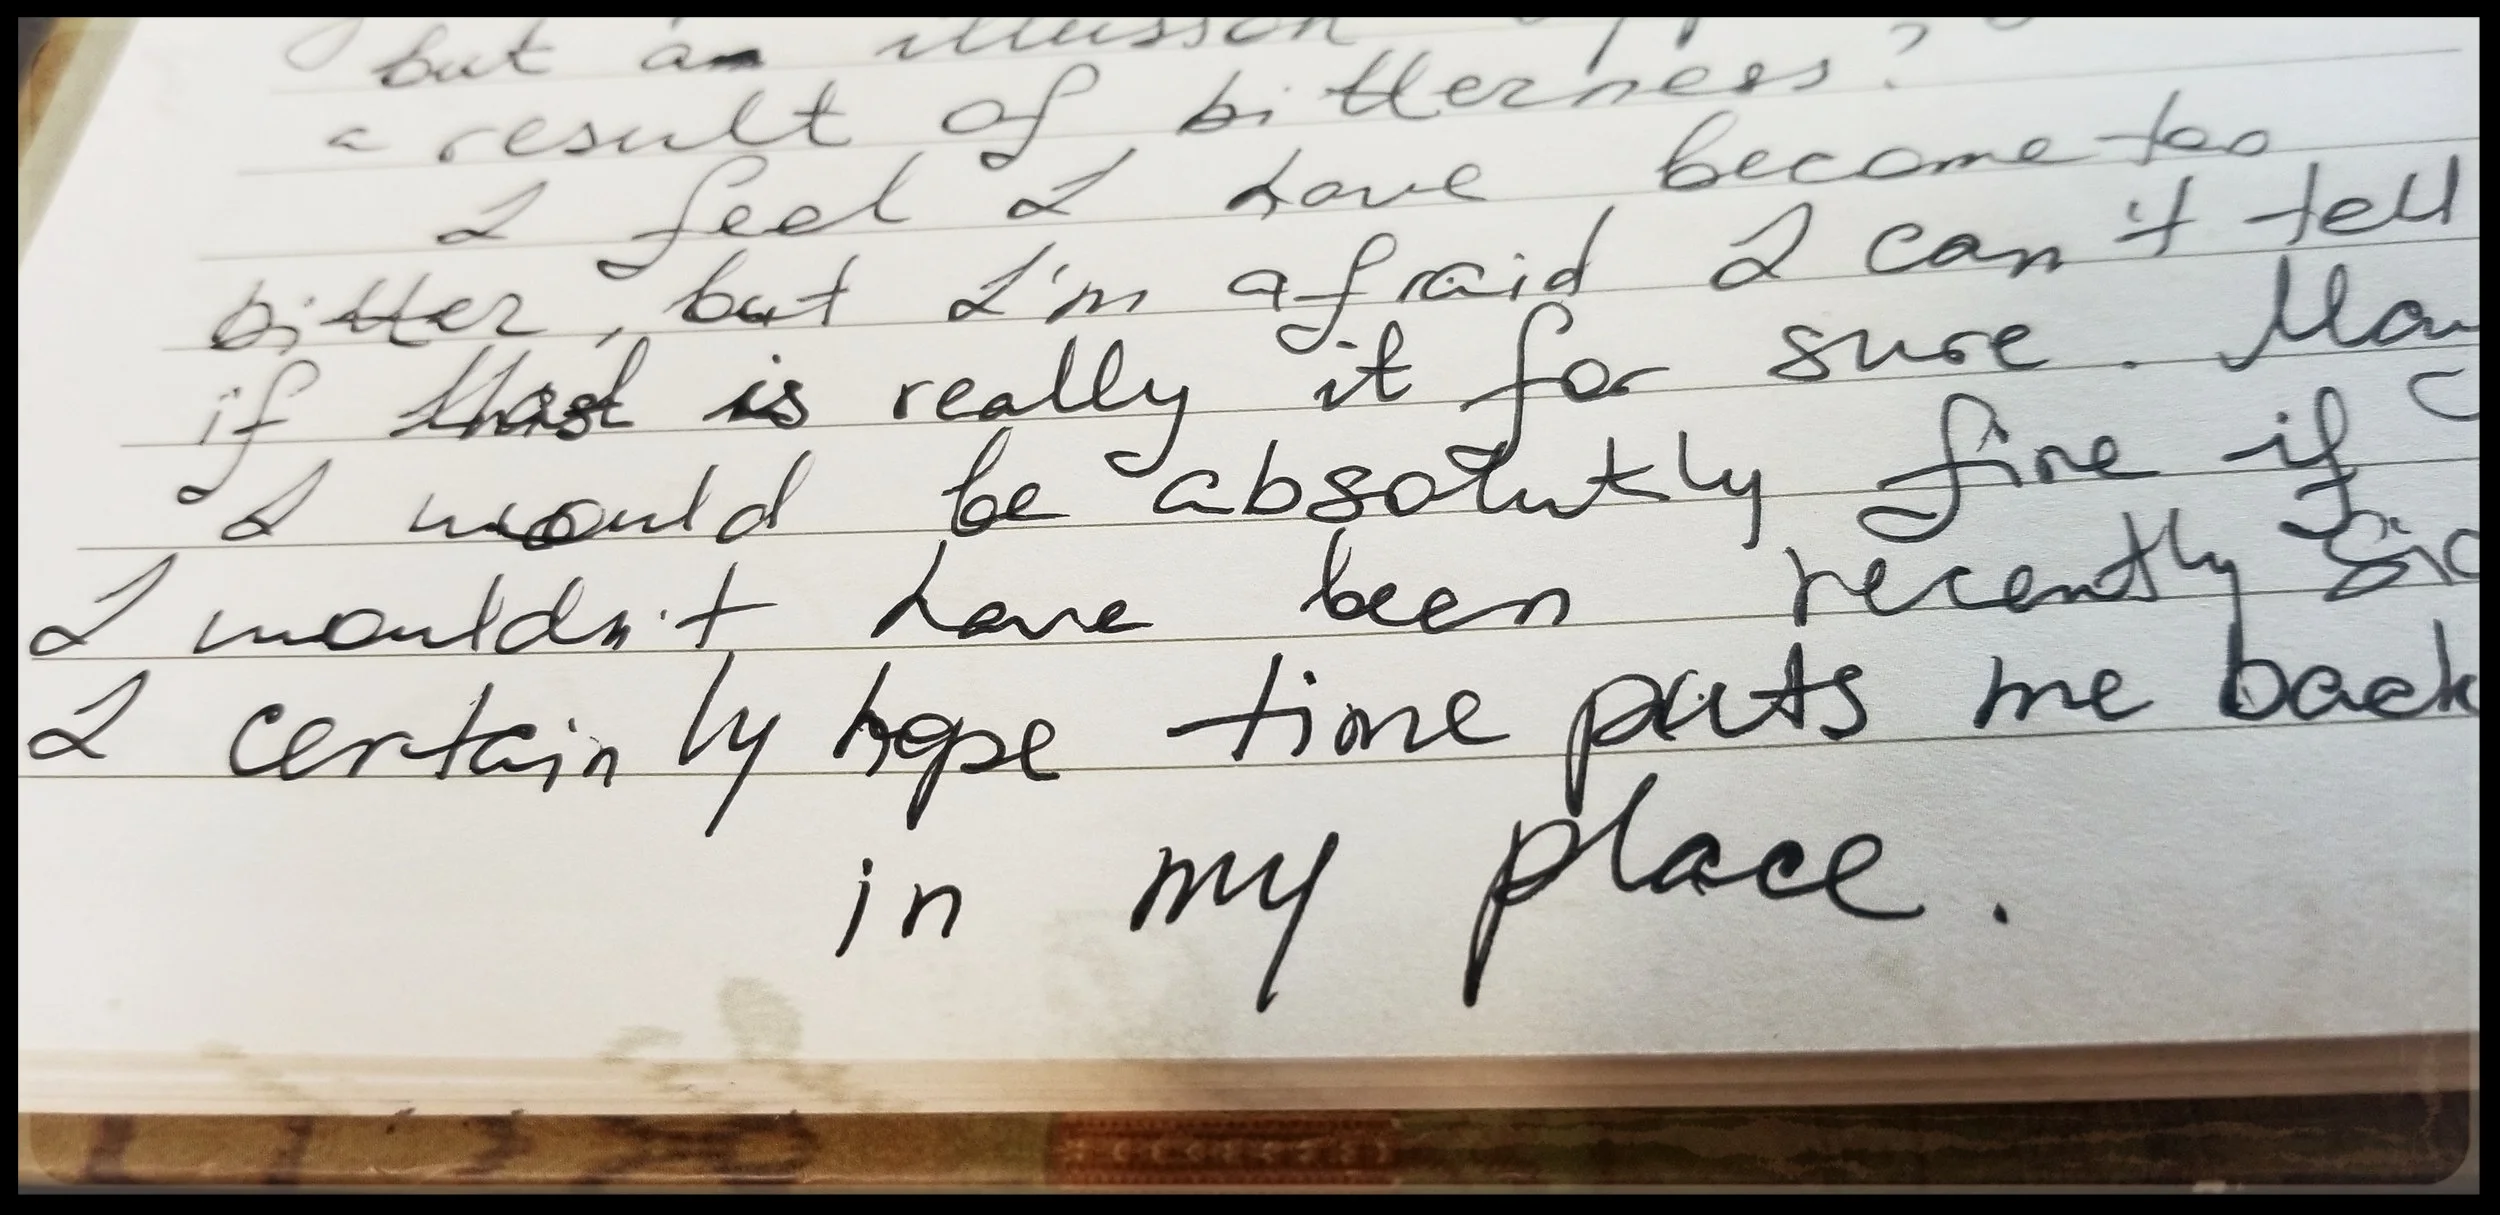 but an illusion
a result of bitterness?
I feel I have become too
bitter, but I'm afraid I can't tell
if that is really it for sure.
I would be absolutly fine if
I wouldn't have been recently
I certainly hope time puts me back
in my place.